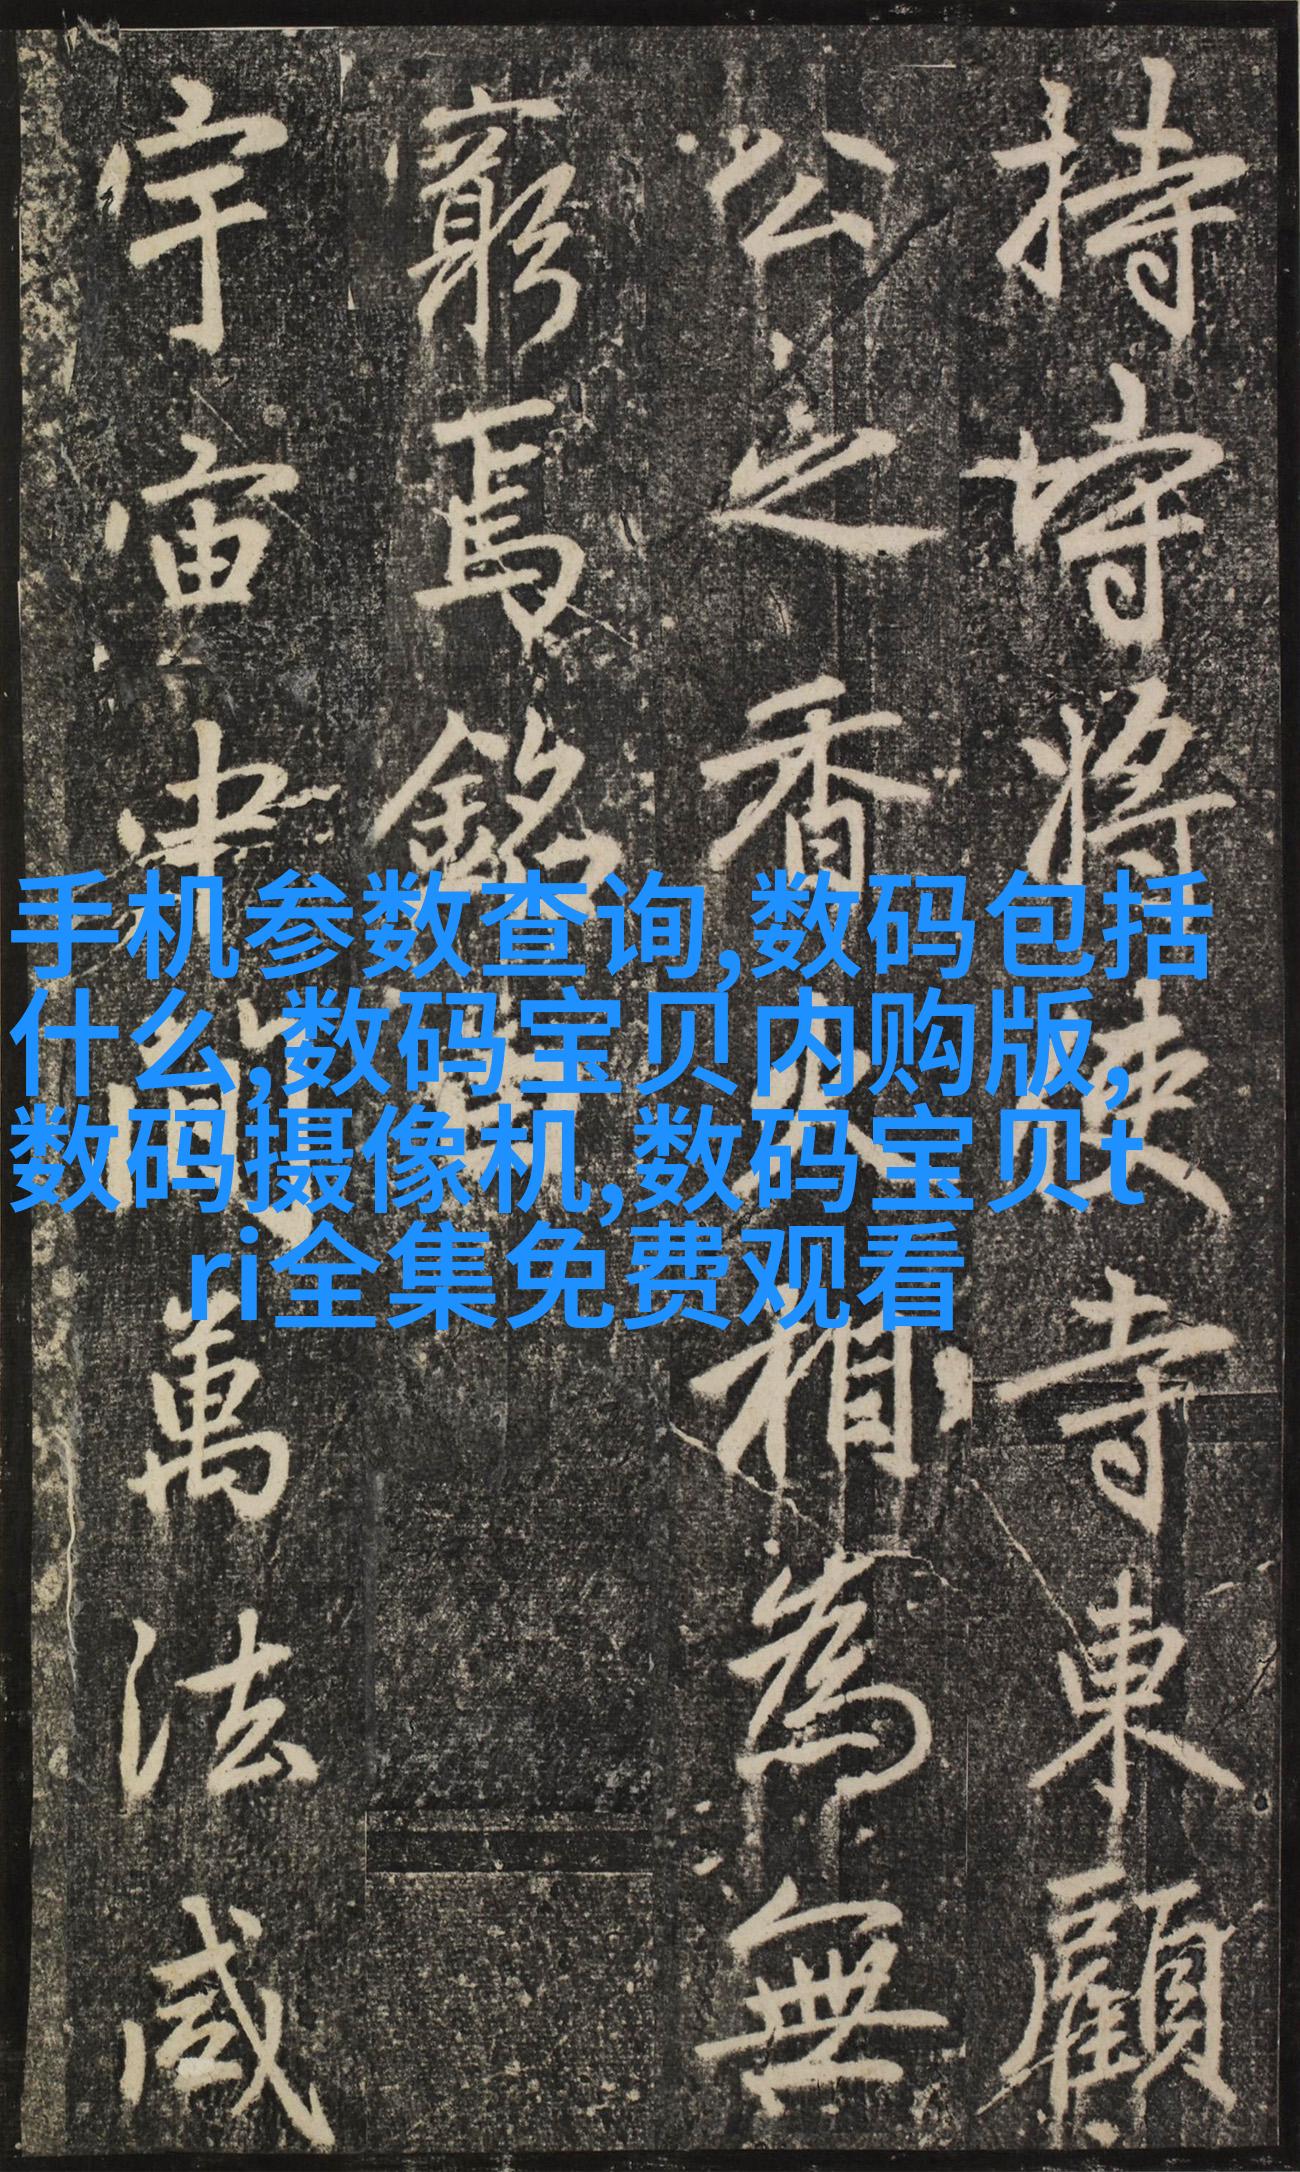 持守將使寺東顧
公之香火相為無
窮焉銘曰
宇宙建則萬法咸
手机参数查询,数码包括
什么,数码宝贝内购版,
数码摄像机,数码宝贝t
ri全集免费观看